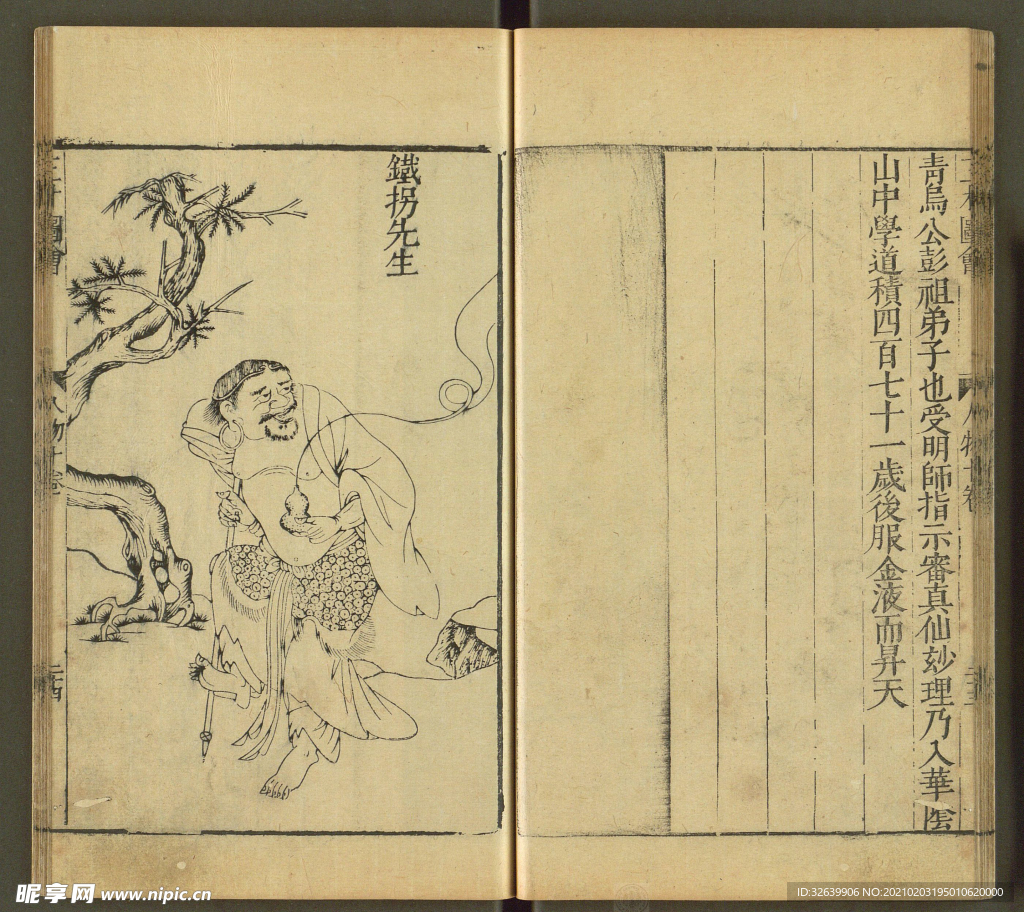 三才圖會
人物十卷
青烏公彭祖弟子也受明師指示審真仙妙理乃入華陰
山中學道積四百七十一歲後服金液而昇天
鐵拐先生
三才圖會
人物十卷
二十四
昵享网 www.nipic.cn
ID:32639906 NO:20210203195010620000